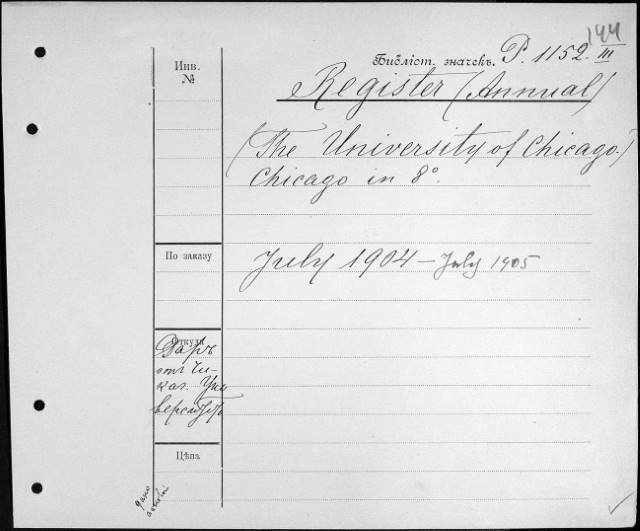 144
Инв.
№
Библіот. значекъ. P. 1152. III
Register (Annual)
(The University of Chicago.)
Chicago in 8°.
По заказу
July 1904 – July 1905
Откуда
Даръ
отъ Чи-
каг. Уни
верситета
Цѣна